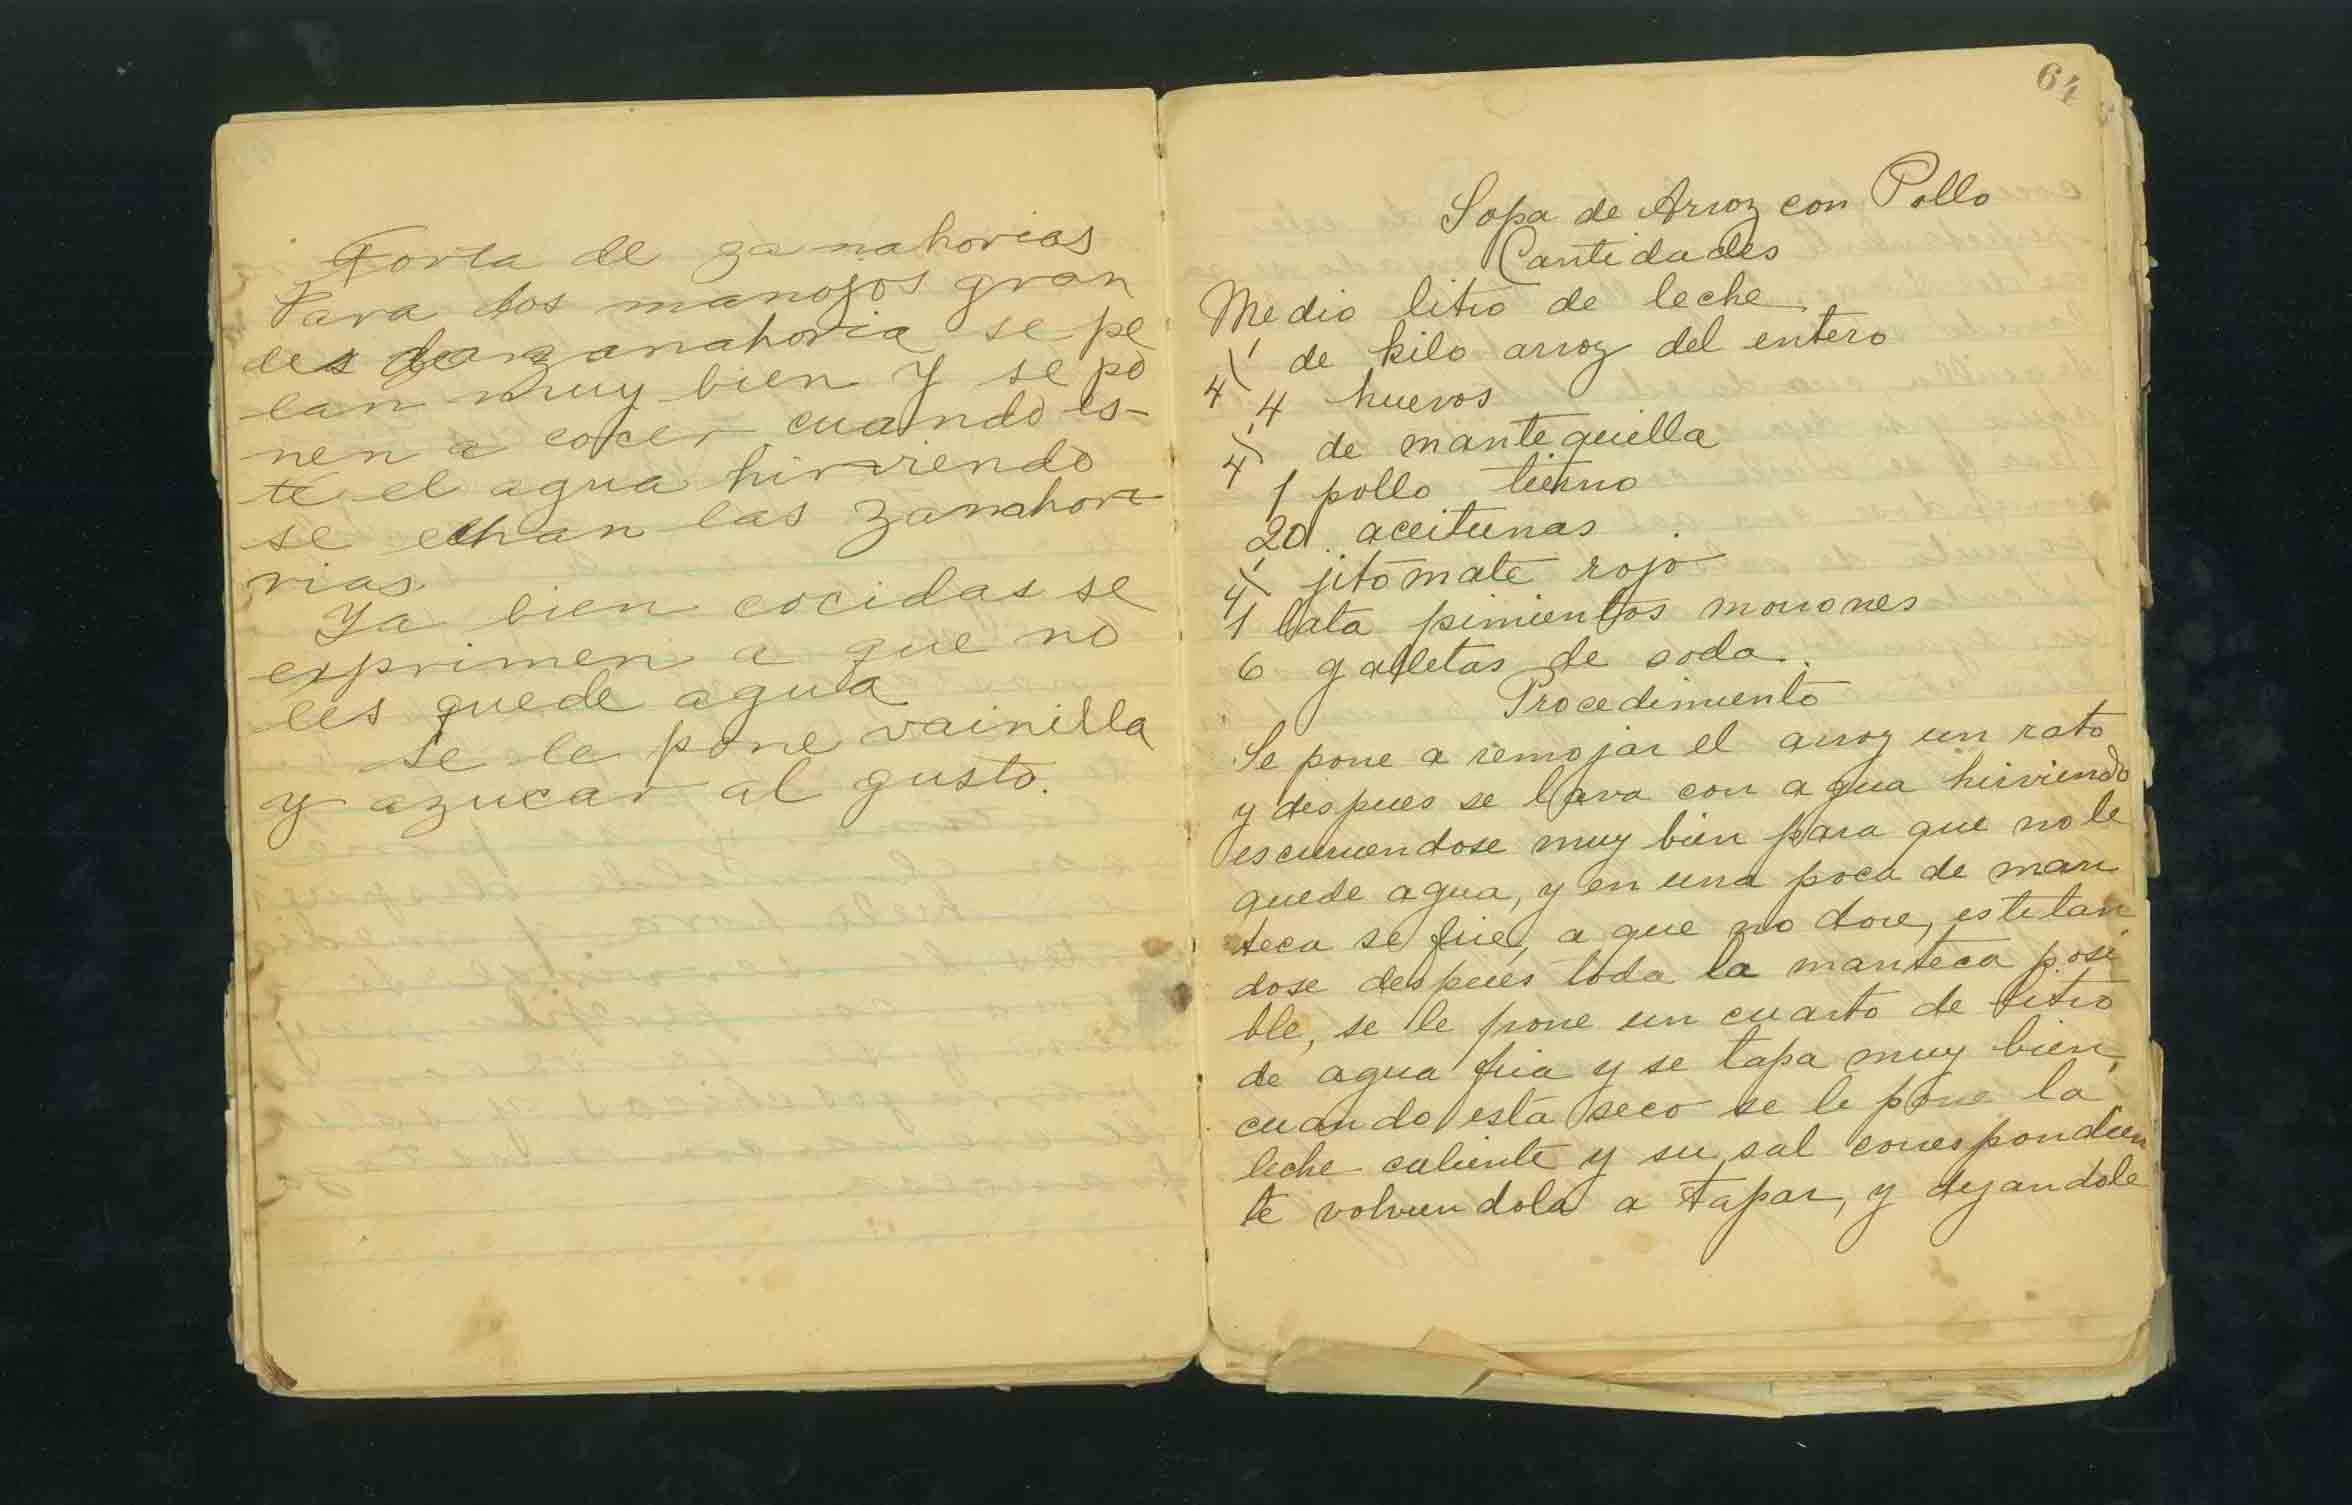 Torta de zanahorias
Para dos manojos gran
des de zanahoria se pe
lan muy bien y se po
nen a cocer cuando es-
té el agua hirviendo
se echan las zanahori
rias
Ya bien cocidas se
exprimen a que no
les quede agua
se le pone vainilla
y azucar al gusto.
64
Sopa de Arroz con Pollo
Cantidades
Medio litro de leche
1/4 de kilo arroz del entero
4 huevos
1/4 de mantequilla
1 pollo tierno
20 aceitunas
1/4 jitomate rojo
1 lata pimientos morrones
6 galletas de soda.
Procedimiento
Se pone a remojar el arroz un rato
y despues se lava con agua hirviendo
escurriendose muy bien para que no le
quede agua, y en una poca de man
teca se frie, a que no dore, estitan
dose despues toda la manteca posi
ble, se le pone un cuarto de litro
de agua fria y se tapa muy bien,
cuando esta seco se le pone la
leche caliente y su sal correspondien
te volviendola a tapar, y dejandole